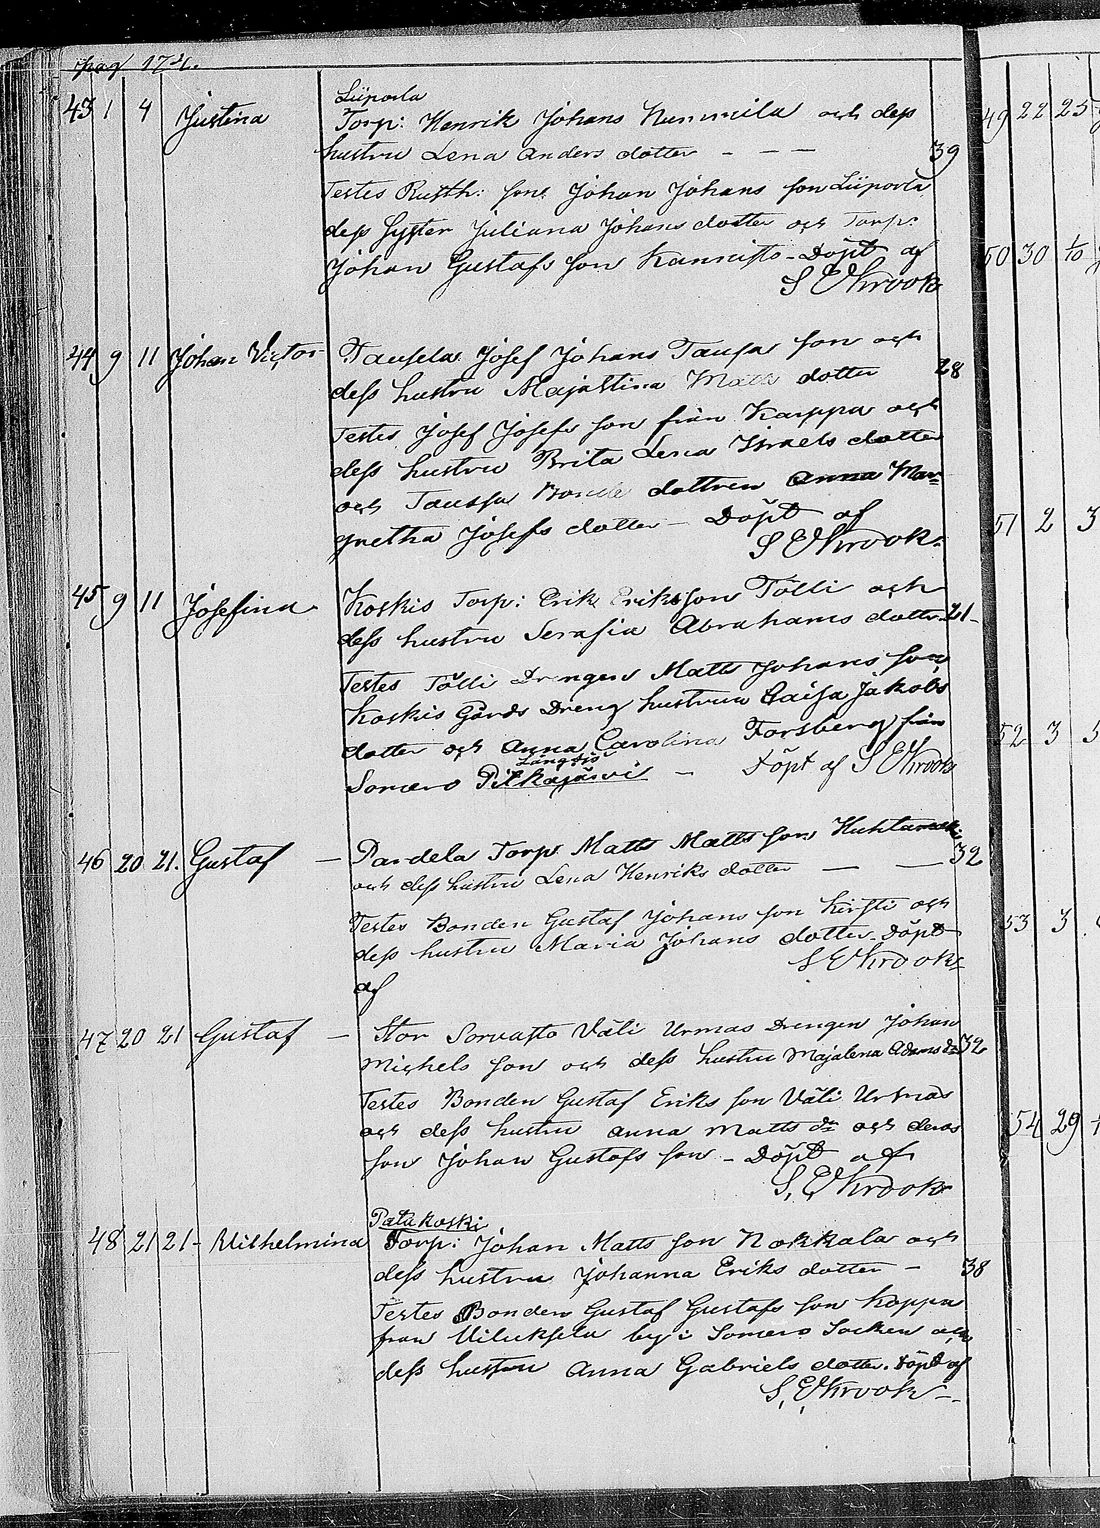 pag 174.
Liiporla
43 1 4 Justina Torp: Henrik Johans Nummila och dess
hustru Lena Anders dotter - - - 39
Testes Rusth: son: Johan Johans son Liiporla
dess Syster Juliana Johans dotter och Torp:
Johan Gustafs son Kannisto - Döpt af
S E Krook
44 9 11 Johan Victor Taussla Josef Johans Taussa son och
dess hustru Maja Stina Matts dotter 28
Testes Josef Josefs son från Karppa och
dess hustru Brita Lena Israels dotter
och Taussa Bonde dottren Anna Mar=
gretha Josefs dotter - Döpt af
S E Krook.
45 9 11 Josefina Koskis Torp: Erik Eriksson Tölli och
dess hustru Serafia Abrahams dotter 21-
Testes Tölli Drengen Matts Johans son
Koskis Gårds Dreng hustrun Caisa Jakobs
dotter och Anna Carolina Forsberg från
Långsjö
Somero Pitkäjärvi - Döpt af S E Krook
46 20 21. Gustaf - Pardela Torp. Matts Matts son Huhtamäki
och dess hustru Lena Henriks dotter - - 32
Testes Bonden Gustaf Johans son Kirsti och
dess hustru Maria Johans dotter. Döpt
S E Krook
af
47 20 21 Gustaf - Stor Sorvasto Väli Urmas Drengen Johan
Michels son och dess hustru Majalena Adams dr 32
Testes Bonden Gustaf Eriks son Väli Urmas
och dess hustru Anna Matts dr och deras
son Johan Gustafs son - Döpt af
S, E, Krook
Patakoski
48 21 21 - Wilhelmina Torp: Johan Matts son Nokkala och
dess hustru Johanna Eriks dotter - 38
Testes Bonden Gustaf Gustafs son Koppa
från Viluksela by i Somero Socken och
dess hustru Anna Gabriels dotter. Döpt af
S, E, Krook -
49 22 25
50 30 1/10
51 2 3
52 3 5
53 3
54 29